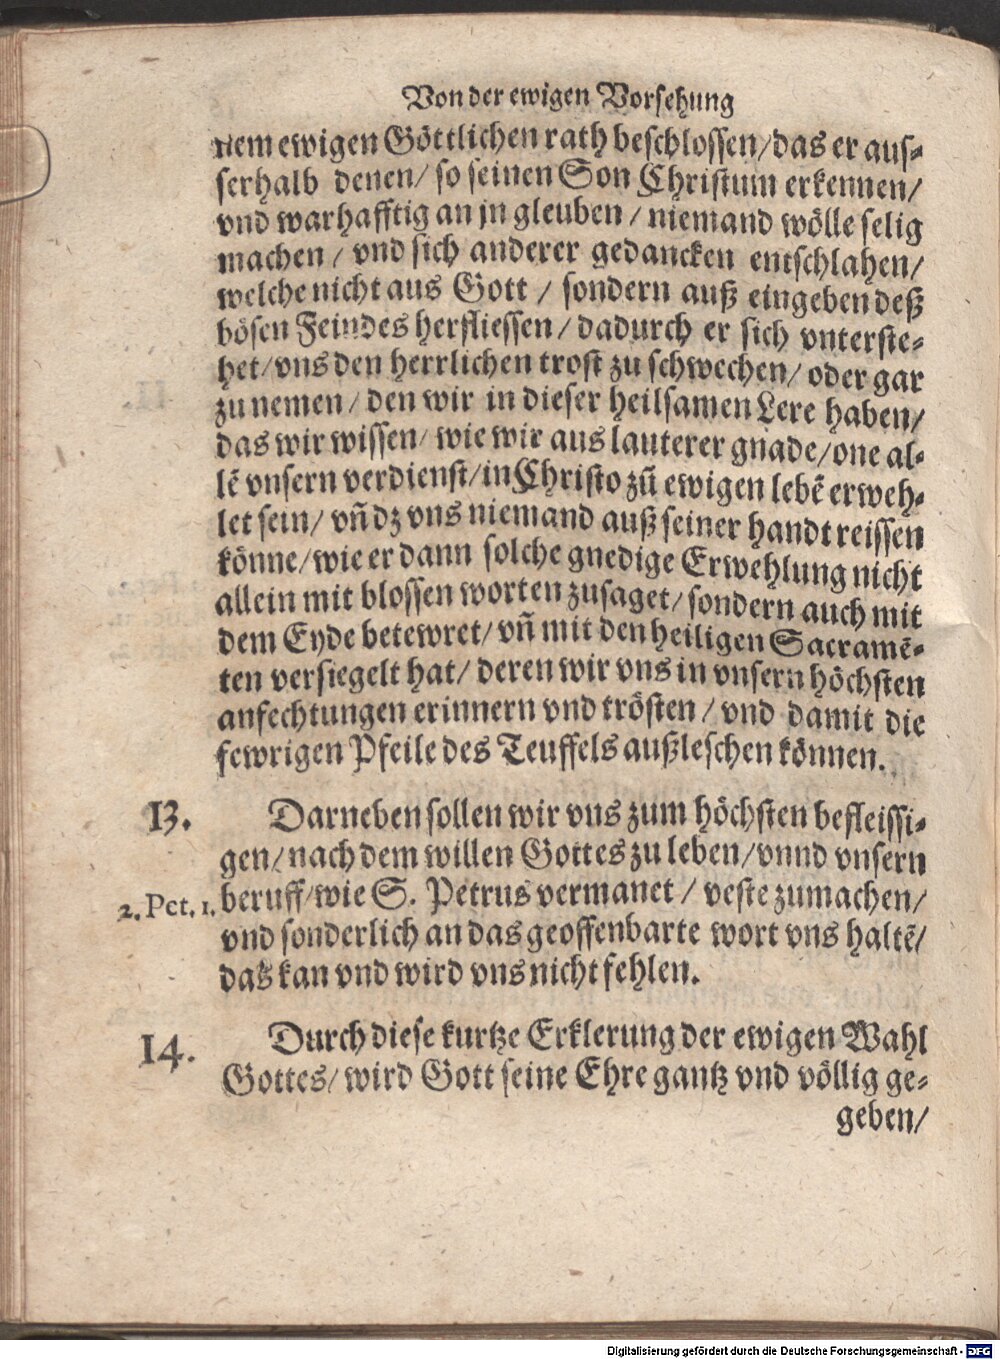 Von der ewigen Vorsehung
nem ewigen Göttlichen rath beschlossen/das er aus-
serhalb denen/ so seinen Son Christum erkennen/
vnd warhafftig an jn gleuben / niemand wölle selig
machen / vnd sich anderer gedancken entschlahen/
welche nicht aus Gott / sondern auß eingeben deß
bösen Feindes herfliessen / dadurch er sich vnterste-
het/vns den herrlichen trost zu schwechen/ oder gar
zu nemen / den wir in dieser heilsamen Lere haben/
das wir wissen/ wie wir aus lauterer gnade/one al-
lē vnsern verdienst/in Christo zū ewigen lebē erweh-
let sein/ vñ dz vns niemand auß seiner handt reissen
könne/wie er dann solche gnedige Erwehlung nicht
allein mit blossen worten zusaget/ sondern auch mit
dem Eyde betewret/ vñ mit den heiligen Sacramē-
ten versiegelt hat/ deren wir vns in vnsern höchsten
anfechtungen erinnern vnd trösten / vnd damit die
fewrigen Pfeile des Teuffels außleschen können.
13. Darneben sollen wir vns zum höchsten befleissi-
gen/nach dem willen Gottes zu leben/vnnd vnsern
2. Pet. 1. beruff/wie S. Petrus vermanet / veste zumachen/
vnd sonderlich an das geoffenbarte wort vns haltē/
das kan vnd wird vns nicht fehlen.
14. Durch diese kurtze Erklerung der ewigen Wahl
Gottes/ wird Gott seine Ehre gantz vnd völlig ge-
geben/
Digitalisierung gefördert durch die Deutsche Forschungsgemeinschaft - DFG